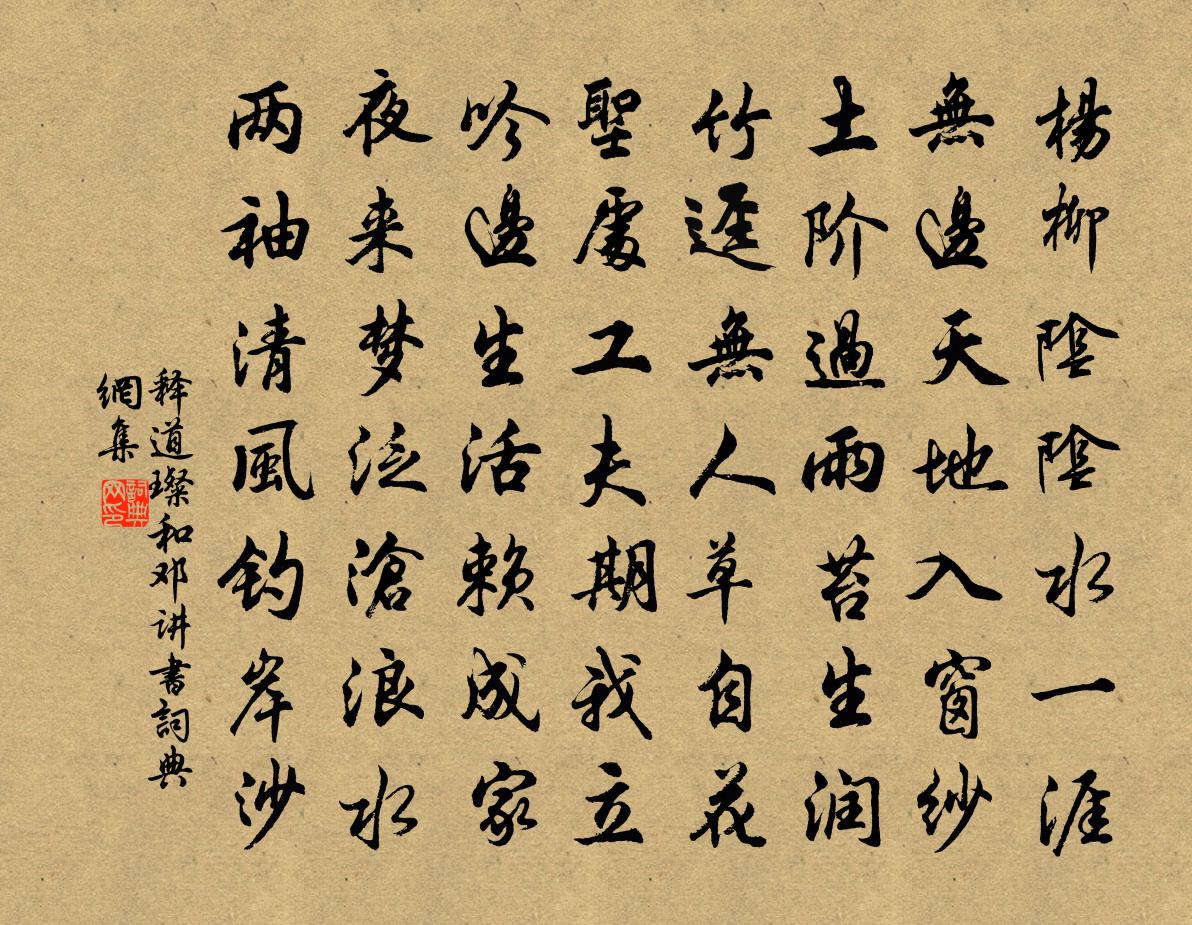 楊柳陰陰水一涯
無邊天地入窗紗
土阶過雨苔生润
竹逕無人草自花
聖處工夫期我立
吟邊生活赖成家
夜来梦泛滄浪水
两袖清風钓岸沙
释道璨和邓讲書詞典
網集
詞典网印